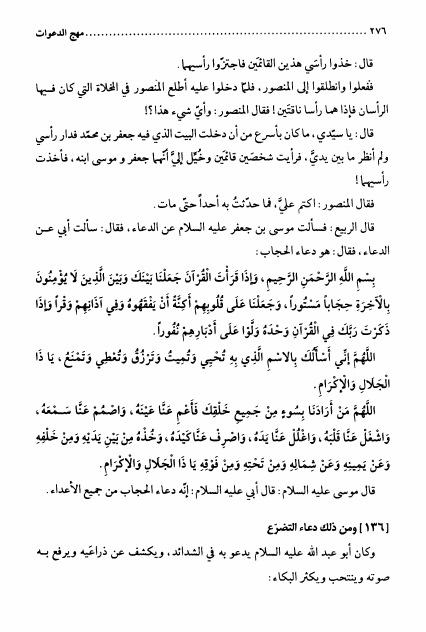 ٢٧٦ ........................................................................ مهج الدعوات
قال: خذوا رأسَي هذين القائمَين فاجتزّوا رأسيهما.
ففعلوا وانطلقوا إلى المنصور، فلمّا دخلوا عليه أطلع المنصور في المخلاة التي كان فيها
الرأسان فإذا هما رأسا ناقتَين! فقال المنصور: وأيّ شيء هذا؟!
قال: يا سيّدي، ما كان بأسرع من أن دخلت البيت الذي فيه جعفر بن محمّد فدار رأسي
ولم أنظر ما بين يديَّ، فرأيت شخصَين قائمَين وخُيِّل إليَّ أنّهما جعفر و موسى ابنه، فأخذت
رأسيهما!
فقال المنصور: اكتم عليَّ، فما حدّثتُ به أحداً حتّى مات.
قال الربيع: فسألت موسى بن جعفر عليه السلام عن الدعاء، فقال: سألت أبي عن
الدعاء، فقال: هو دعاء الحجاب:
بِسْمِ اللَّهِ الرَّحْمَنِ الرَّحِيمِ، وَإِذَا قَرَأْتَ الْقُرْآنَ جَعَلْنَا بَيْنَكَ وَبَيْنَ الَّذِينَ لَا يُؤْمِنُونَ
بِالْآخِرَةِ حِجَاباً مَسْتُوراً، وَجَعَلْنَا عَلَى قُلُوبِهِمْ أَكِنَّةً أَنْ يَفْقَهُوهُ وَفِي آذَانِهِمْ وَقْراً وَإِذَا
ذَكَرْتَ رَبَّكَ فِي الْقُرْآنِ وَحْدَهُ وَلَّوْا عَلَى أَدْبَارِهِمْ نُفُوراً.
اللَّهُمَّ إِنِّي أَسْأَلُكَ بِالاسْمِ الَّذِي بِهِ تُحْيِي وَتُمِيتُ وَتَرْزُقُ وَتُعْطِي وَتَمْنَعُ، يَا ذَا
الْجَلَالِ وَالْإِكْرَامِ.
اللَّهُمَّ مَنْ أَرَادَنَا بِسُوءٍ مِنْ جَمِيعِ خَلْقِكَ فَأَعْمِ عَنَّا عَيْنَهُ، وَاصْمُمْ عَنَّا سَمْعَهُ،
وَاشْغَلْ عَنَّا قَلْبَهُ، وَاغْلُلْ عَنَّا يَدَهُ، وَاصْرِفْ عَنَّا كَيْدَهُ، وَخُذْهُ مِنْ بَيْنِ يَدَيْهِ وَمِنْ خَلْفِهِ
وَعَنْ يَمِينِهِ وَعَنْ شِمَالِهِ وَمِنْ تَحْتِهِ وَمِنْ فَوْقِهِ يَا ذَا الْجَلَالِ وَالْإِكْرَامِ.
قال موسى عليه السلام: قال أبي عليه السلام: إنّه دعاء الحجاب من جميع الأعداء.
[١٣٦] ومن ذلك دعاء التضرّع
وكان أبو عبد الله عليه السلام يدعو به في الشدائد، ويكشف عن ذراعَيه ويرفع به
صوته وينتحب ويكثر البكاء: